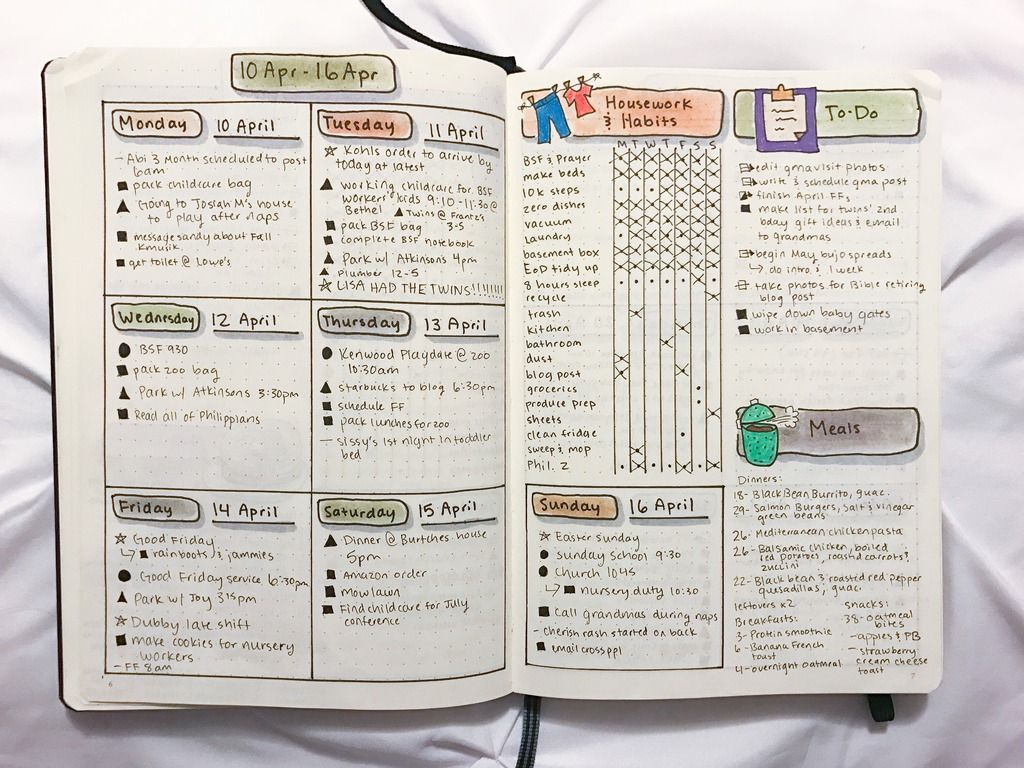 10 Apr - 16 Apr
Monday 10 April
- Abi 3 Month scheduled to post
6am
pack childcare bag
Going to Josiah M's house
to play after naps
message sandy about Fall
Kmusik
get toilet @ Lowe's
Tuesday 11 April
Kohls order to arrive by
today at latest
working childcare for BSF
workers' kids 9:10-11:30 @
Bethel Twins @ Frantz's
pack BSF bag 3-5
complete BSF notebook
Park w/ Atkinson's 4pm
Plumber 12-5
LISA HAD THE TWINS!!!!!!!!
Wednesday 12 April
BSF 930
pack zoo bag
Park w/ Atkinsons 3:30pm
Read all of Philippians
Thursday 13 April
Kenwood Playdate @ zoo
10:30am
starbuck's to blog 6:30pm
schedule FF
pack lunches for zoo
- sissy's 1st night in toddler
bed
Friday 14 April
Good Friday
rainboots & jammies
Good Friday service 6:30pm
Park w/ Joy 315pm
Dubby late shift
make cookies for nursery
workers
- FF 8am
Saturday 15 April
Dinner @ Burtches house
5pm
Amazon order
mow lawn
Find childcare for July
conference
6
Housework
& Habits
M T W T F S S
BSF & Prayer
make beds
10k steps
zero dishes
vacuum
Laundry
basement box
EoD tidy up
8 hours sleep
recycle
trash
kitchen
bathroom
dust
blog post
groceries
produce prep
sheets
clean fridge
sweep & mop
Phil. 2
Sunday 16 April
Easter Sunday
Sunday school 9:30
Church 1045
nursery duty 10:30
Call grandmas during naps
- cherish rash started on back
email cross ppl
To-Do
edit gma visit photos
write & schedule gma post
finish April FFs
make list for twins' 2nd
bday gift ideas & email
to grandmas
begin May bujo spreads
do intro & 1 week
take photos for Bible retiring
blog post
wipe down baby gates
work in basement
Meals
Dinners:
18- Black Bean Burrito, guac.
29- Salmon Burgers, salt & vinegar
green beans
26- Mediterranean chicken pasta
26- Balsamic chicken, boiled
red potatoes, roasted carrots &
zuccini
22- Black bean & roasted red pepper
quesadillas, guac.
leftovers x2
Breakfasts:
3- Protein smoothie
6- Banana French
toast
4- overnight oatmeal
snacks:
38- oatmeal
bites
- apples & PB
- strawberry
cream cheese
toast
7